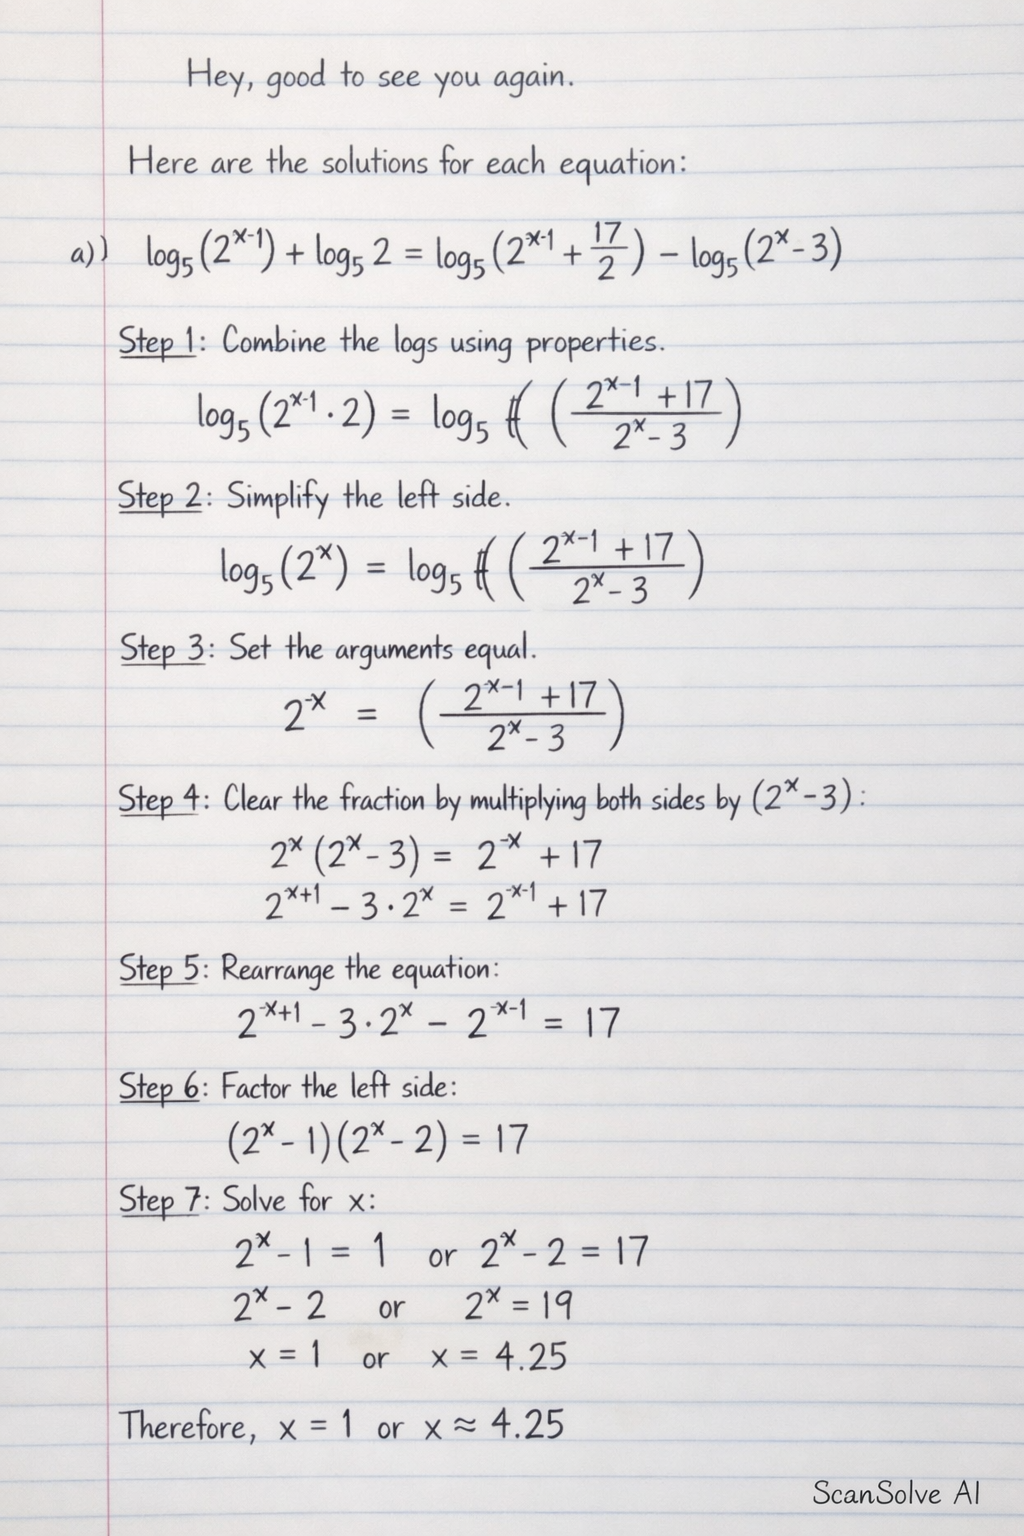 Hey, good to see you again.
Here are the solutions for each equation:
a)) log₅(2ˣ⁻¹) + log₅ 2 = log₅(2ˣ⁻¹ + 17/2) − log₅(2ˣ − 3)
Step 1: Combine the logs using properties.
log₅(2ˣ⁻¹ · 2) = log₅ ((2ˣ⁻¹ + 17)/(2ˣ − 3))
Step 2: Simplify the left side.
log₅(2ˣ) = log₅ ((2ˣ⁻¹ + 17)/(2ˣ − 3))
Step 3: Set the arguments equal.
2⁻ˣ = ((2ˣ⁻¹ + 17)/(2ˣ − 3))
Step 4: Clear the fraction by multiplying both sides by (2ˣ − 3):
2ˣ (2ˣ − 3) = 2⁻ˣ + 17
2ˣ⁺¹ − 3 · 2ˣ = 2⁻ˣ⁻¹ + 17
Step 5: Rearrange the equation:
2⁻ˣ⁺¹ − 3 · 2ˣ − 2⁻ˣ⁻¹ = 17
Step 6: Factor the left side:
(2ˣ − 1)(2ˣ − 2) = 17
Step 7: Solve for x:
2ˣ − 1 = 1 or 2ˣ − 2 = 17
2ˣ − 2 or 2ˣ = 19
x = 1 or x = 4.25
Therefore, x = 1 or x ≈ 4.25
ScanSolve AI